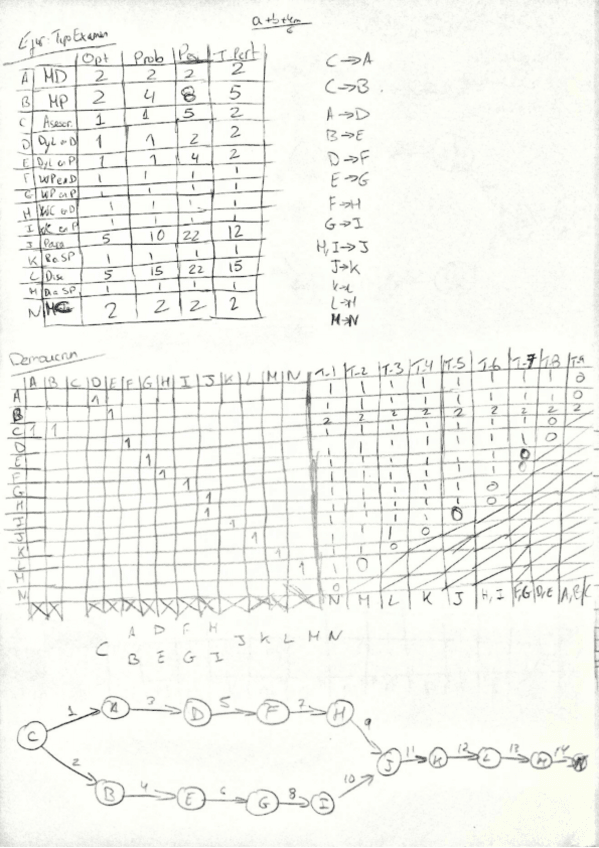 a+b+4m
6
Ejer. Tipo Examen
Opt Prob Pes T. Pert
A MD 2 2 2 2
B MP 2 4 8 5
C Asesor. 1 1 5 2
D DyL en D 1 1 2 2
E DyL en P 1 1 4 2
F WP en D 1 1 1 1
G WP en P 1 1 1 1
H WC en D 1 1 1 1
I WC en P 1 1 1 1
J 5 10 22 12
K Re SP 1 1 1 1
L Dise 5 15 22 15
M Di SP 1 1 1 1
N MC 2 2 2 2
C→A
C→B
A→D
B→E
D→F
E→G
F→H
G→I
H,I→J
J→K
K→L
L→M
M→N
A B C D E F G H I J K L M N T-1 T-2 T-3 T-4 T-5 T-6 T-7 T-8 T-9
A 1 1 1 1 1 1 1 1 1 0
B 1 1 1 1 1 1 1 1 1 0
C 1 1 2 2 2 2 2 2 2 2 2
D 1 1 1 1 1 1 1 1 0
E 1 1 1 1 1 1 1 1 0
F 1 1 1 1 1 1 1 0
G 1 1 1 1 1 1 1 0
H 1 1 1 1 1 1 0
I 1 1 1 1 1 1 0
J 1 1 1 1 1 0
K 1 1 1 1 0
L 1 1 1 0
M 1 1 0
N 0
N M L K J H,I F,G D,E A,B C
A D F H
C J K L M N
B E G I
1 3 5 7
C A D F H
9
J 11 K 12 L 13 M 14 N
2 4 6 8 10
B E G I